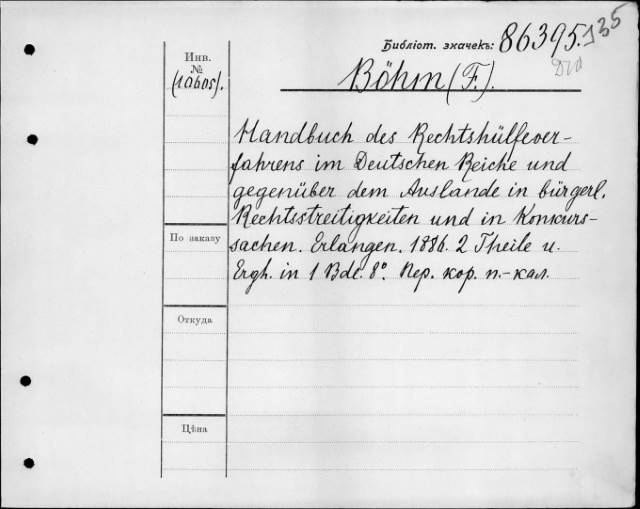 Библіот. значекъ: 86395.
135
Инв.
№
(10605).
Böhm (F.).
Handbuch des Rechtshülfever-
fahrens im Deutschen Reiche und
gegenüber dem Auslande in bürgerl.
Rechtsstreitigkeiten und in Konkurs-
sachen. Erlangen. 1886. 2 Theile u.
Ergh. in 1 Bde. 8º. Пер. кор. п.-кал.
По заказу
Откуда
Цѣна